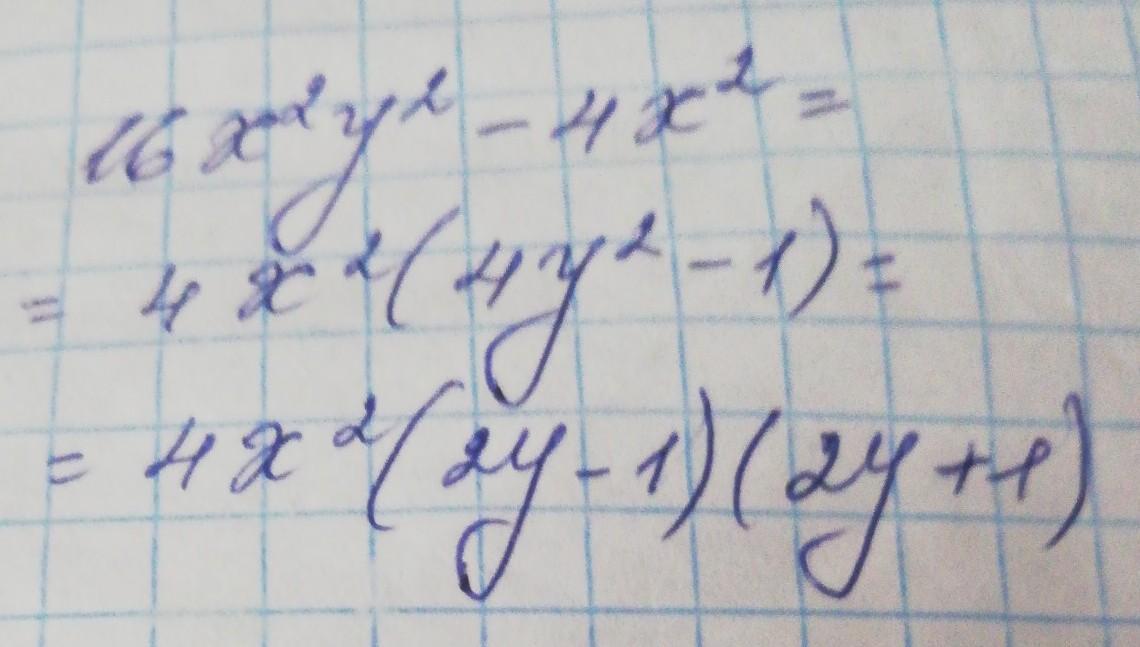 16x²y² - 4x² =
= 4x²(4y² - 1) =
= 4x²(2y - 1)(2y + 1)